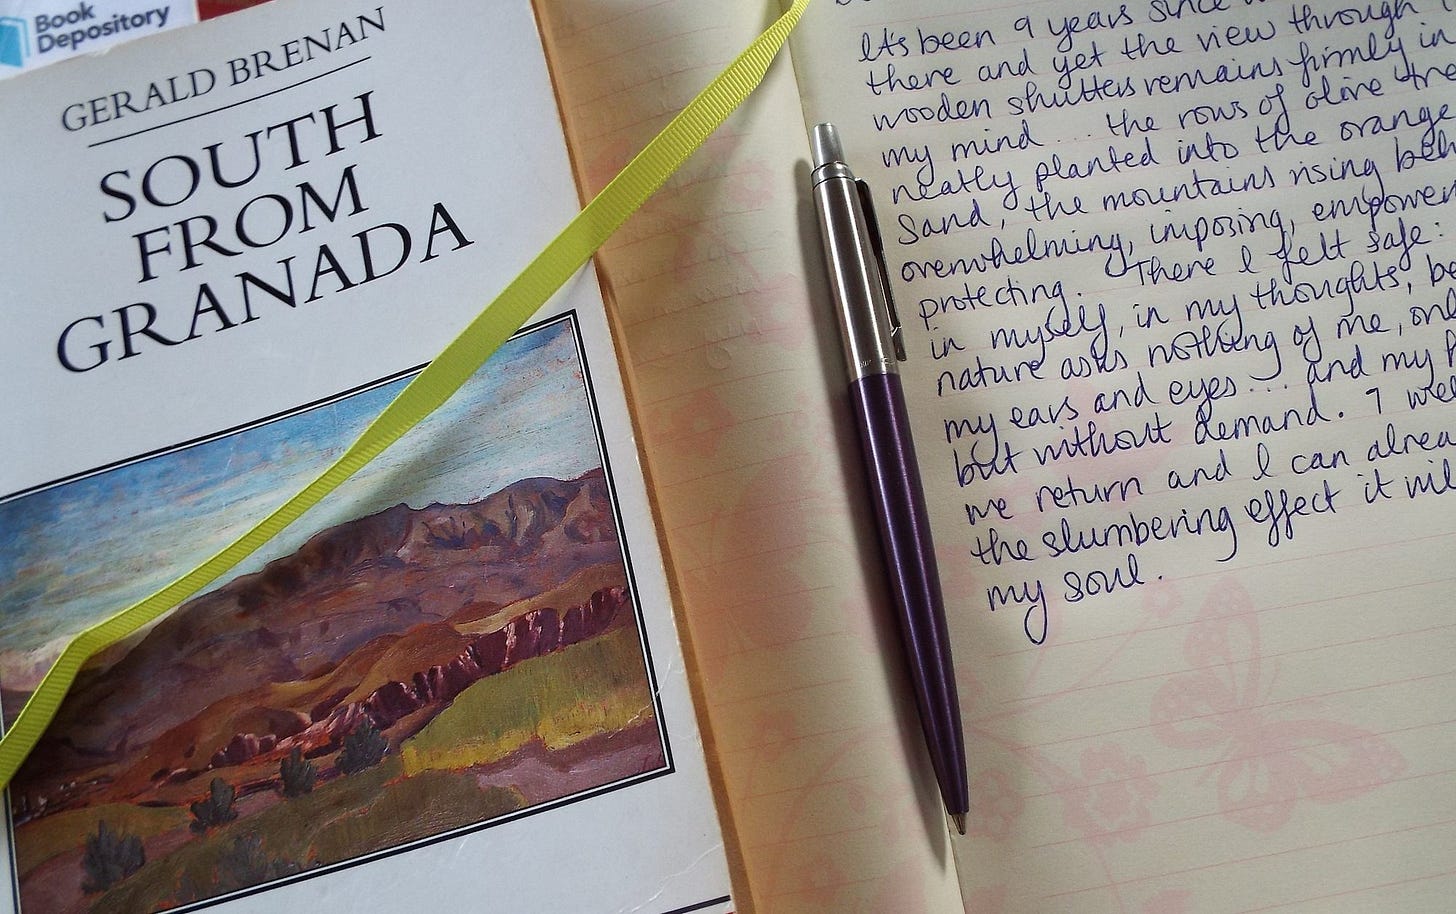 Book
Depository
GERALD BRENAN
SOUTH
FROM
GRANADA
It's been 9 years since
there and yet the view through
wooden shutters remains firmly in
my mind ... the rows of olive
neatly planted into the orange
sand, the mountains rising
overwhelming, imposing,
protecting. There I felt safe:
in myself, in my thoughts,
nature asks nothing of me,
my ears and eyes ... and my
but without demand.
we return and I can
the slumbering effect it
my soul.